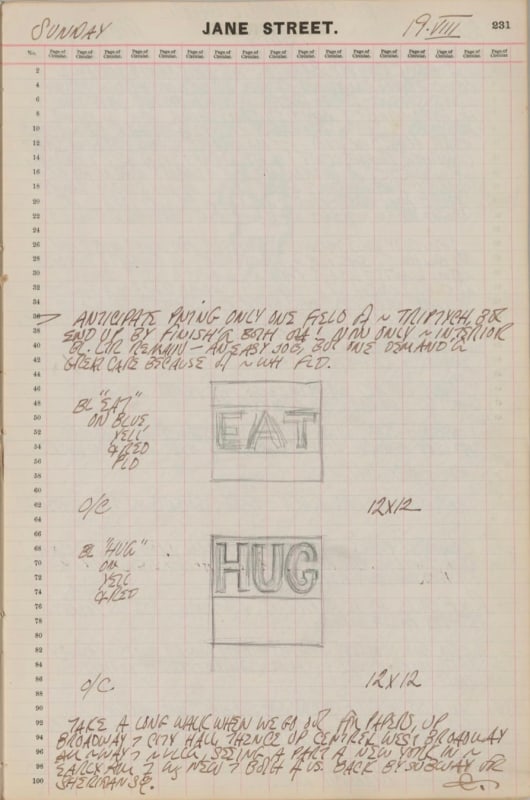 SUNDAY JANE STREET. 19·VIII 231
No. Page of Circular. Page of Circular. Page of Circular. Page of Circular. Page of Circular. Page of Circular. Page of Circular. Page of Circular. Page of Circular. Page of Circular. Page of Circular. Page of Circular. Page of Circular. Page of Circular. Page of Circular. Page of Circular. Page of Circular.
2
4
6
8
10
12
14
16
18
20
22
24
26
28
30
32
34
36
38
40
42
44
46
48
50
52
54
56
58
60
62
64
66
68
70
72
74
76
78
80
82
84
86
88
90
92
94
96
98
100
ANTICIPATE ONLY ONE FIELD TRIPTYCH, BUT
END UP BY BOTH ONLY ~ INTERIOR
REMAIN — AN EASY JOB, BUT ONE
CARE BECAUSE ~ WH FLD.
BL "EAT"
ON BLUE,
YELL
& RED
FLD
EAT
O/C 12X12
BL "HUG"
ON
YELL
& RED
HUG
O/C 12X12
TAKE A LONG WALK WHEN WE GO OUT PAPERS, UP
BROADWAY CITY HALL THENCE UP CENTRE, WEST BROADWAY
SEEING A PART NEW YORK IN ~
NEW BOTH US. BACK BY SUBWAY
SHERIDAN SQ.